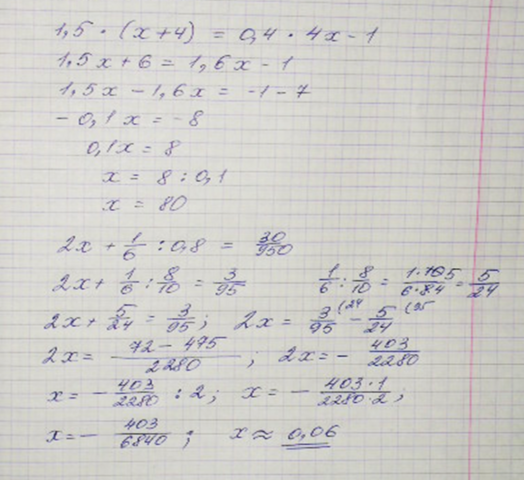 1,5 · (x+4) = 0,4 · 4x-1
1,5x + 6 = 1,6x - 1
1,5x - 1,6x = -1 - 7
- 0,1x = -8
0,1x = 8
x = 8 : 0,1
x = 80
2x + 1/6 : 0,8 = 30/950
2x + 1/6 : 8/10 = 3/95 1/6 : 8/10 = 1·105/6·84 = 5/24
2x + 5/24 = 3/95 ; 2x = 3/95 (24 - 5/24 (95
2x = 72 - 475/2280 ; 2x = - 403/2280
x = - 403/2280 : 2 ; x = - 403·1/2280·2 ;
x = - 403/6840 ; x ≈ 0,06